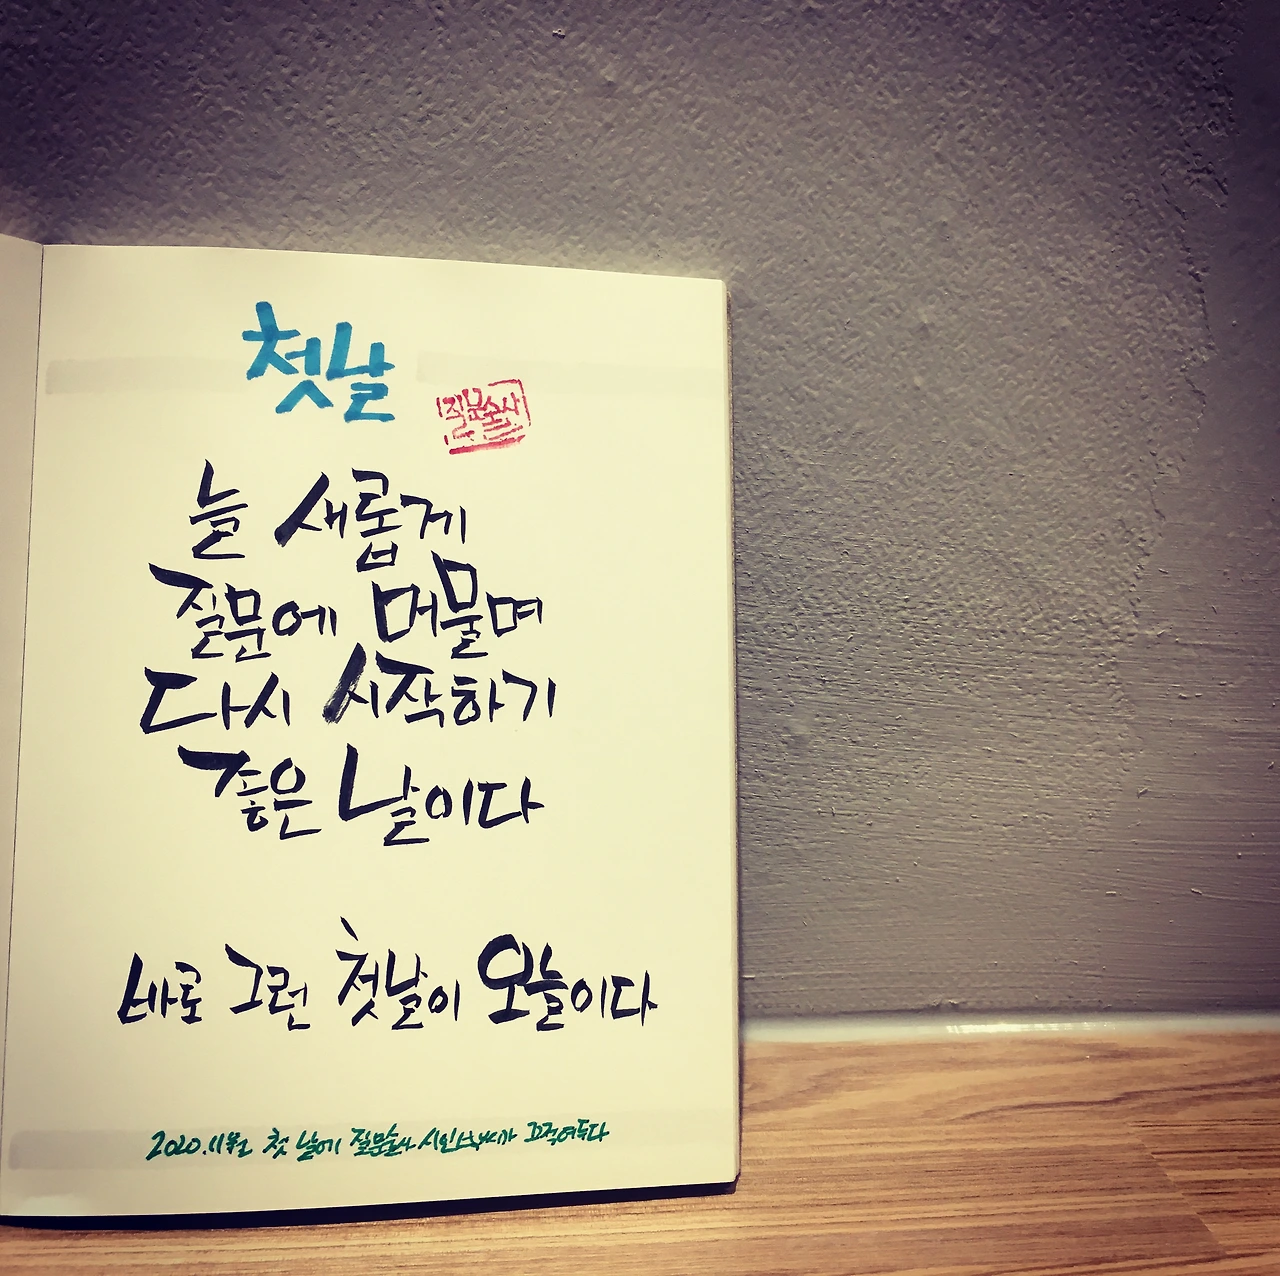 첫날
질문술사
늘 새롭게
질문에 머물며
다시 시작하기
좋은 날이다
바로 그런 첫날이 오늘이다
2020.11월 첫 날에 질문술사 시인박씨가 끄적여두다